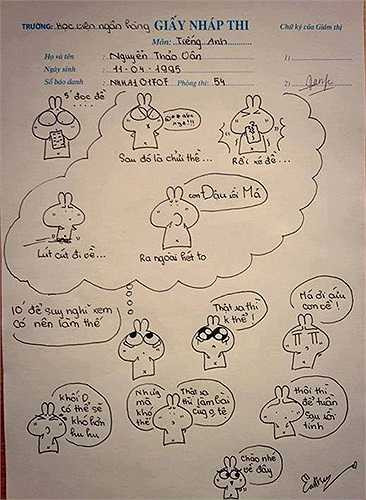 TRƯỜNG: Học viện ngân hàng GIẤY NHÁP THI
Chữ ký của Giám thị
Môn: Tiếng Anh
Họ và tên Nguyễn Thảo Vân 1)
Ngày sinh 11-04-1995
Số báo danh Phòng thi: 54 2)
5' đọc đề
Sau đó là chửi thề...
Rồi xé đề...
Lút cút đi về...
con Đậu rồi Má
Ra ngoài hét to
10' để suy nghĩ xem
có nên làm thế
Thật ra thì
k thể!
Má ơi cíu
con về!
khối D,
có thể sẽ
khó hơn
hu hu
Nhưng
mà
khó
thế
Thật ra
thì làm bài
cũng ổ tê
thôi thì
để tuần
sau rồi
tính
Chào nhé
về đây